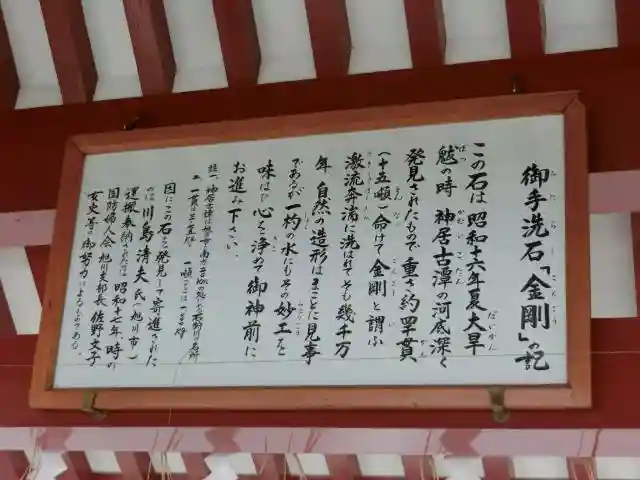 御手洗石「金剛」の記
この石は昭和十六年夏大旱
魃の時 神居古潭の河底深く
発見されたもので 重さ約四〇〇貫
(十五噸)命けて「金剛」と謂ふ
激流奔湍に洗はれてそも幾千万
年 自然の造形はまことに見事
であるが 一杓の水にもその妙工を
味はひ 心を浄めて御神前に
お進み下さい。
一貫は三・七五瓩 一噸は
因にこの石を発見して寄進された
のは 川島清夫氏(旭川市)
運搬奉納されたのは 昭和十七年、時の
国防婦人会 旭川支部長 佐野文子
女史等の御努力によるものである。